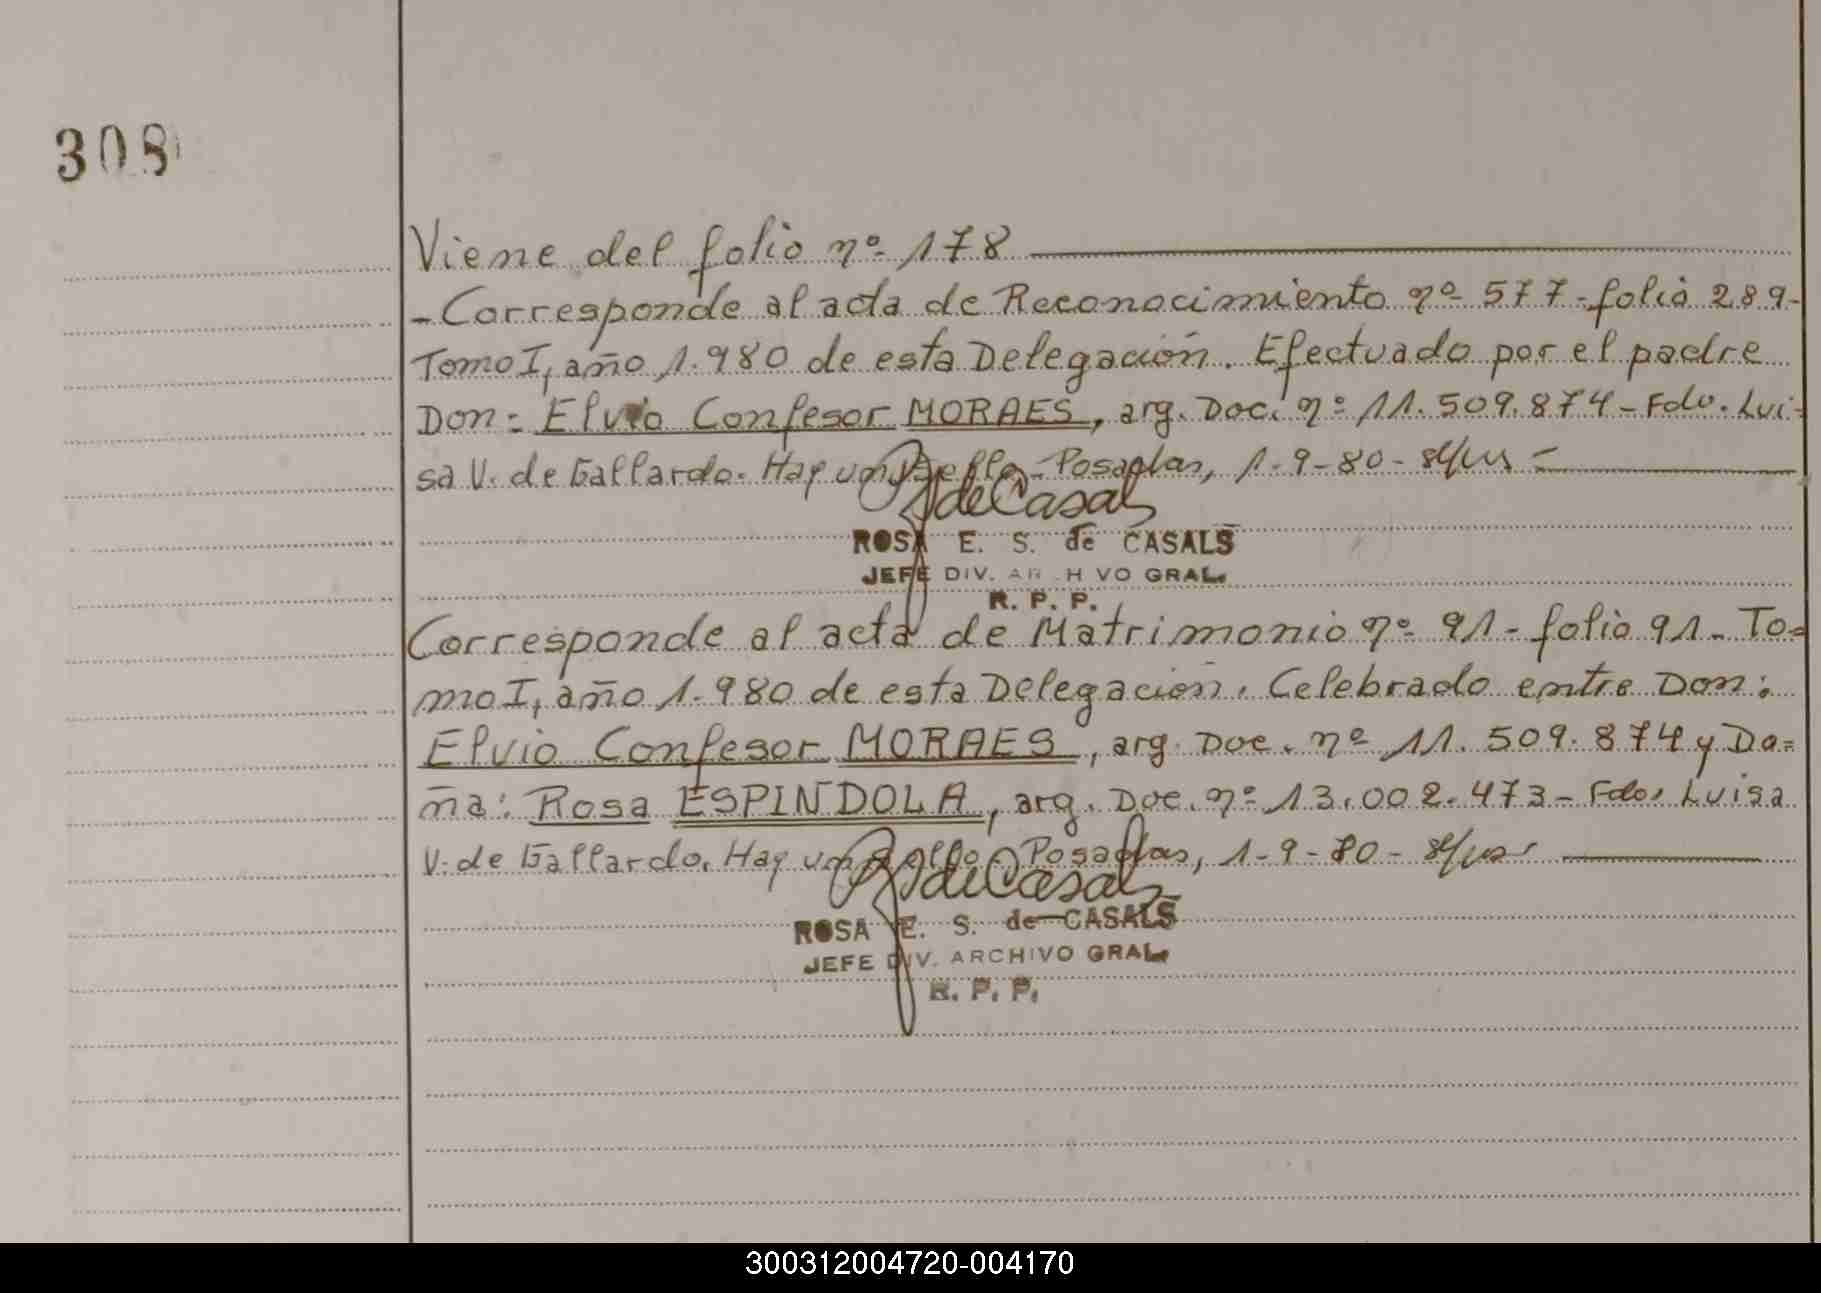 308
Viene del folio nº 178
- Corresponde al acta de Reconocimiento nº 577 - folio 289 -
Tomo I, año 1.980 de esta Delegación. Efectuado por el padre
Don: Elvio Confesor MORAES, arg. Doc. nº 11.509.874 - Fdo. Lui-
sa V. de Gallardo. Hay un sello - Posadas, 1-9-80 -
R S de Casals
ROSA E. S. de CASALS
JEFE DIV. ARCHIVO GRAL.
R. P. P.
Corresponde al acta de Matrimonio nº 91 - folio 91 - To-
mo I, año 1.980 de esta Delegación. Celebrado entre Don:
Elvio Confesor MORAES, arg. Doc. nº 11.509.874 y Do=
ña: Rosa ESPINDOLA, arg. Doc. nº 13.002.473 - Fdo. Luisa
V. de Gallardo. Hay un sello. Posadas, 1-9-80 -
R S de Casals
ROSA E. S. de CASALS
JEFE DIV. ARCHIVO GRAL.
R. P. P.
300312004720-004170